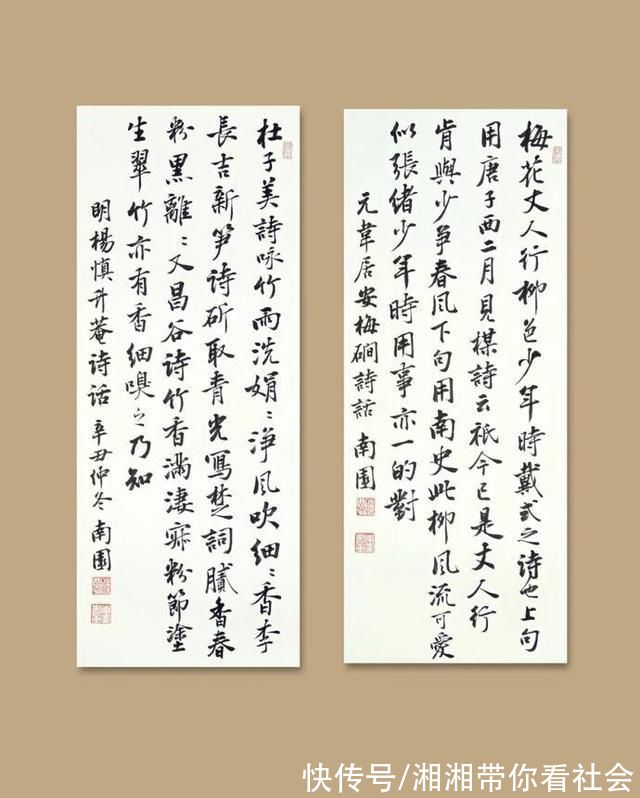 梅花丈人行柳色少年時戴式之诗也上句
用唐子西二月見楳詩云祇今已是丈人行
肯與少争春风下句用南史此柳风流可愛
似張绪少年時用事亦一的對
元韋居安梅磵詩話 南園
杜子美詩咏竹雨洗娟〻淨风吹细〻香李
長吉新笋诗斫取青光寫楚詞膩香春
粉黑離〻又昌谷诗竹香滿淒寂粉節塗
生翠竹亦有香细嗅之乃知
明楊慎升菴诗话 辛丑仲冬 南園
快传号/湘湘带你看社会